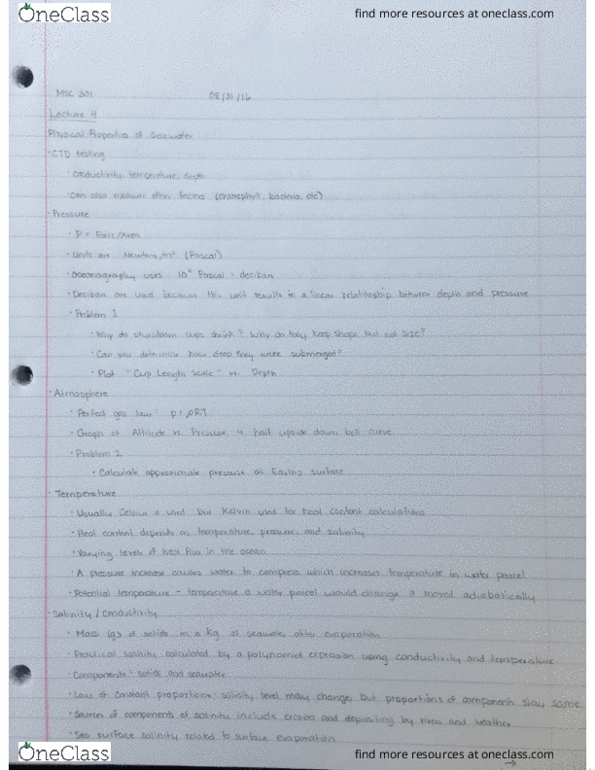 OneClass
find more resources at oneclass.com
MSC 301 08/31/16
Lecture 4
Physical Properties of Seawater
· CTD testing
· conductivity, temperature, depth
· can also measure other factors (chlorophyll, bacteria, etc)
· Pressure
· P = Force/Area
· Units are Newtons/m² (Pascal)
· Oceanography uses 10⁴ Pascal = decibar
· Decibar are used because this unit results in a linear relationship between depth and pressure
· Problem 1
· Why do styrofoam cups shrink? Why do they keep shape but not size?
· Can you determine how deep they were submerged?
· Plot "Cup Length Scale" vs. Depth
· Atmosphere
· Perfect gas law: p = ρRT
· Graph of Altitude vs. Pressure is half upside down bell curve
· Problem 2
· Calculate approximate pressure at Earths surface
· Temperature
· Usually Celsius is used but Kelvin used for heat content calculations
· Heat content depends on temperature, pressure, and salinity
· Varying levels of heat flux in the ocean
· A pressure increase causes water to compress which increases temperature in water parcel
· Potential temperature - temperature a water parcel would change if moved adiabatically
· Salinity / Conductivity
· Mass (g) of solids in a kg of seawater after evaporation
· Practical salinity calculated by a polynomial expression using conductivity and temperature
· Components: solids and seawater
· Law of Constant proportions: salinity level may change, but proportions of components stay same
· Sources of components of salinity include erosion and depositing by rivers and weather
· Sea surface salinity related to surface evaporation
→
OneClass
find more resources at oneclass.com